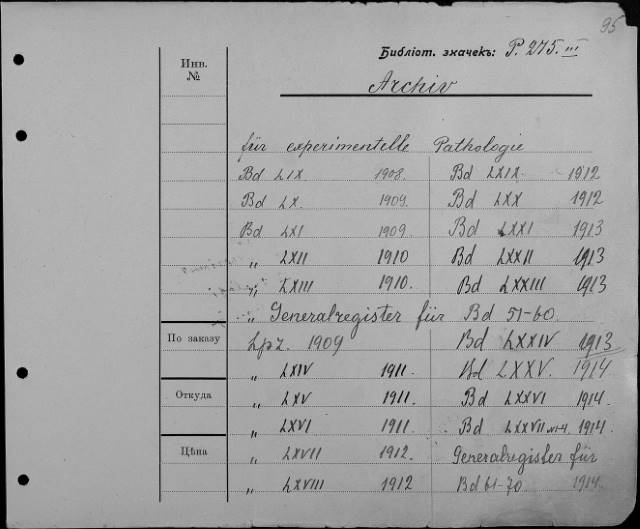 95
Библіот. значекъ: P. 275. III
Archiv
Инв.
№
für experimentelle Pathologie
Bd LIX 1908. Bd LXIX 1912
Bd LX. 1909. Bd LXX 1912
Bd LXI 1909. Bd LXXI 1913
„ LXII 1910 Bd LXXII 1913
„ LXIII 1910. Bd LXXIII 1913
„ Generalregister für Bd 51-60.
По заказу
Lpz. 1909 Bd LXXIV 1913
„ LXIV 1911. Bd LXXV. 1914
Откуда
„ LXV 1911. Bd LXXVI 1914.
„ LXVI 1911 Bd LXXVII №1-4. 1914.
Цѣна
„ LXVII 1912. Generalregister für
„ LXVIII 1912 Bd 61-70.